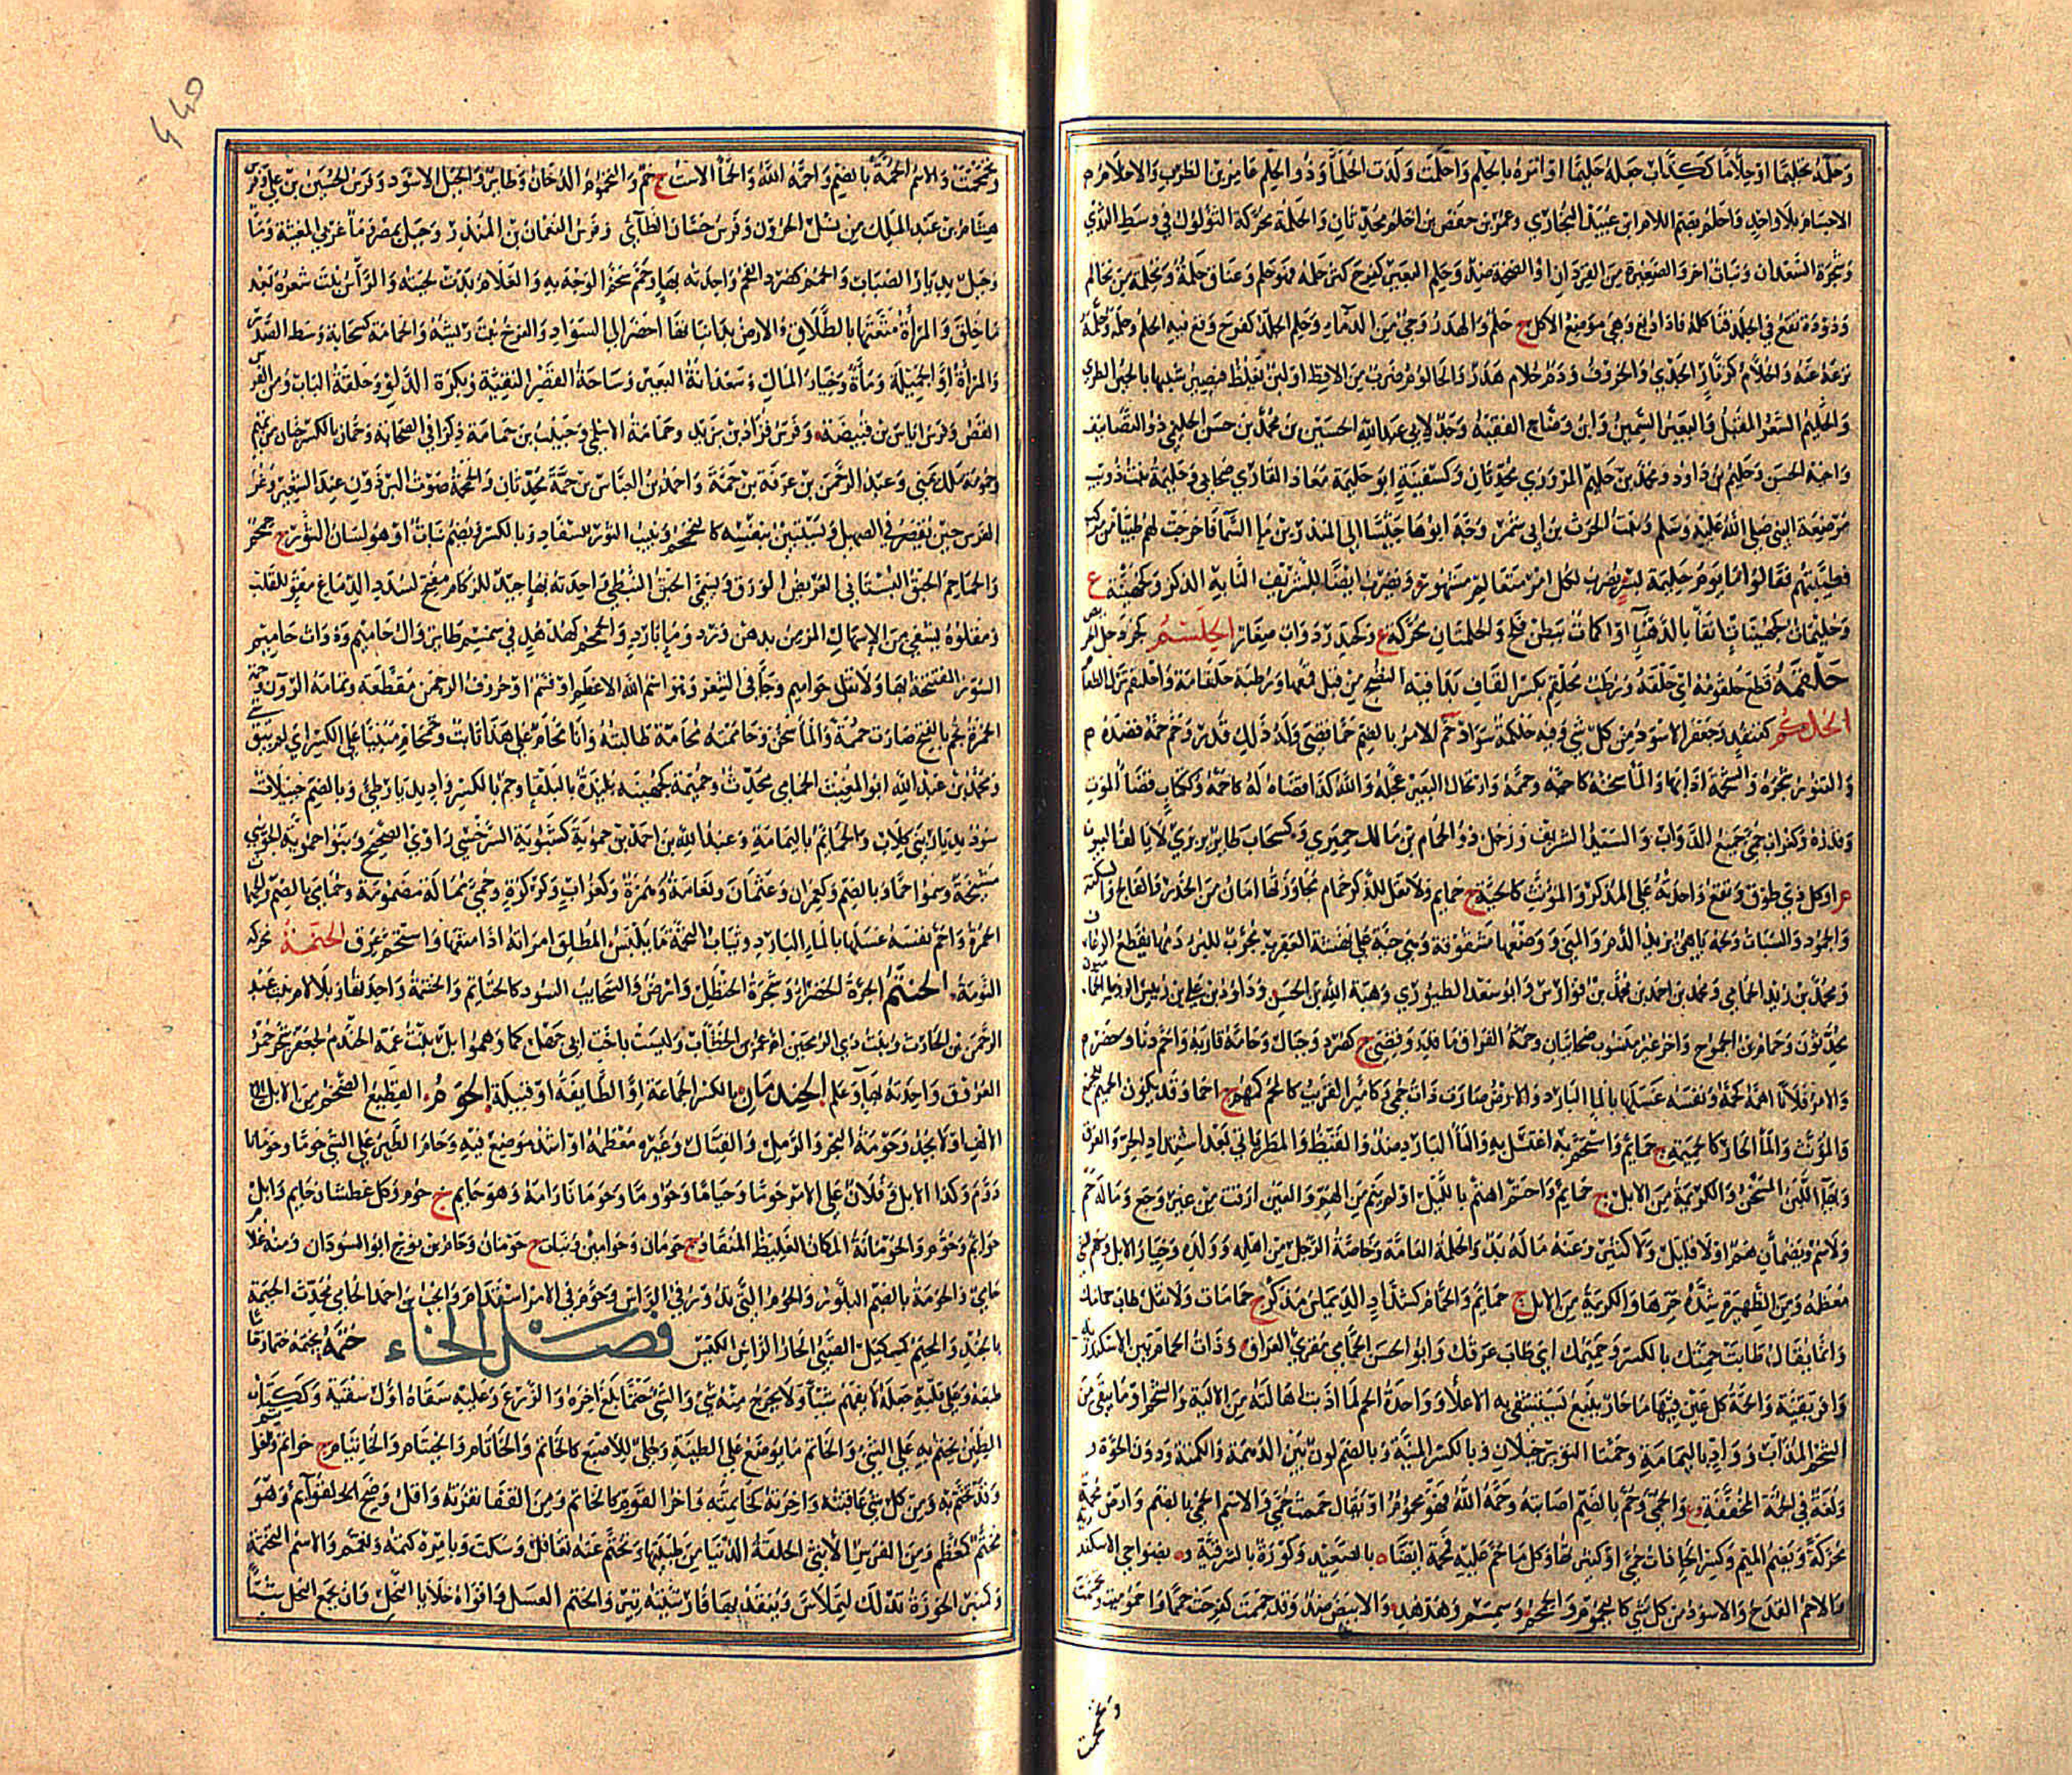 وحلمه تحليما او حلاما ككذاب جعله حليما او امره بالحلم واحلمت ولدت الحلماء وذو الحلم عامر بن الظرب والاحلام
الاجسام بلا واحد واحلم بضم اللام ابن عبيد البخاري وعمر بن حفص بن احلم محدثان والحلمة محركة الثؤلول في وسط الثدي
وشجرة السعدان ونبات اخر والصغيرة من القردان او الضخمة ضد وحلم البعير كفرح كثر حلمه فهو حلم وعناق حلمة وتحلمة من تحالم
ودودة تقع في الجلد فتاكله فاذا دبغ وهي موضع الاكل ج حلم والهدر وحي من الدماء وحلم الجلد كفرح وقع فيه الحلم وحلمه وحلمه
نزعه عنه والحلام كزنار الجدي والخروف ودم حلام هدر والحالوم ضرب من الاقط او لبن يغلظ فيصير شبيها بالجبن الطري
والحليم الشحم المقبل والبعير السمين وابن وضاح الفقيه وجد لابي عبد الله الحسين بن محمد بن حسن الحليمي ذو التصانيف
واخيه الحسن وحليم بن داود ومحمد بن حليم المروزي محدثان وكسفينة ابو حليمة معاذ القاري صحابي وحليمة بنت ذويب
مرضعة النبي صلى الله عليه وسلم وبنت الحرث بن ابي شمر وجه ابوها جيشا الى المنذر بن ماء السما فاخرجت لهم طيبا من مركن
فطيبتهم فقالوا ما يوم حليمة بسر يضرب لكل امر متعالم مشهور ويضرب ايضا للشريف النابه الذكر وكجهينة ع
وحليمات كجهينات انقا بالدهنا او اكمات ببطن فلج والحلمتان محركة ع وكحيدر دواب صغار الحلسم كجردحل
حلقمه قطع حلقومه اي حلقه ورطب محلقم بكسر القاف بدا فيه النضج من قبل قمعها ورطبة حلقامة واحلنقم ترك الطعام
الحلكم كقنفد وجعفر الاسود من كل شي وفيه حلكمة سواد حم الامر بالضم حما قضي وله ذلك قدر وحم حمه قصد قصده
والتنور سجره والشحمة اذابها والما سخنه كاحمه وحممه وارتحال البعير عجله والله كذا قضاه له كاحمه وككتاب قضا الموت
وقدره وكغراب حمى جميع الدواب والسيد الشريف ورجل ذو الحمام بن مالك حميري وكسحاب طاير بري لا يالف البيوت
او كل ذي طوق وتقع واحدته على المذكر والمؤنث كالحية ج حمايم ولا تقل للذكر حمام مجاورتها امان من الخدر والفالج والسكتة
والجمود والسبات ولحمه باهي يزيد الدم والمني ووضعها مشقوقة وهي حية على نهشة العقرب مجرب للبرء ودمها يقطع الرعاف
ومحمد بن يزيد الحمامي ومحمد بن احمد بن محمد بن فوارس وابو سعد الطيوري وهبة الله بن الحسن وداود بن علي بن رييس الروسا الحماميون
محدثون وحمام بن الجموح واخر غير منسوب صحابيان وحمة الفراق ما قدر وقضي ج كصرد وجبال وحامه قاربه واحم دنا وحضر
والامر فلانا اهمه كحمه ونفسه غسلها بالما البارد والارض صارت ذات حمى وكامير القريب كالمحم كمهم ج احما وقد يكون الحميم للجمع
والمؤنث والما الحار كالحميمة ج حمايم واستحم به اغتسل به والما البارد ضد والقيظ والمطر ياتي بعد اشتداد الحر والعرق
وبها اللبن المسخن والكريمة من الابل ج حمايم واحتم اهتم بالليل او لم ينم من الهم والعين ارقت من غير وجع وما له حم
ولا سم ويضمان هم او لا قليل ولا كثير وعنه ما له بد والحامة العامة وخاصة الرجل من اهله وولده وخيار الابل وحم الشي
معظمه ومن الظهيرة شدة حرها والكريمة من الابل ج حمايم والحمام كشداد الديماس مذكر ج حمامات ولا يقل طاب حمامك
وانما يقال طابت حمتك بالكسر وحميمك اي طاب عرقك وابو الحسن الحمامي مقري العراق وذات الحمام بين الاسكندرية
وافريقية والحمة كل عين فيها ما حار ينبع يستشفي به الاعلا وواحدة الحم لما اذبت اهالته من الالية والشحم او ما يبقى من
الشحم المذاب وواد باليمامة وحمتا الثوير جبلان وبالكسر المنية وبالضم لون بين الدهمة والكمتة ودون الحوة
ولغة في الحمة المخففة ع والحمى وحم بالضم اصابته وحمه الله فهو محموم او يقال حممت حمى والاسم الحمى بالضم وارض محمة
محركة وبضم الميم وكسر الحا ذات حمى او كثيرتها وكل ما حم عليه فمحمة ايضا ه بالصعيد وكورة بالشرقية وه بضواحي الاسكندرية
والاحم القدح والاسود من كل شي كاليحموم والحمحم وسمسم وهدهد والابيض ضد وقد حممت كفرحت حمما واحموميت وتحممت
وتحمحمت
وتحمحمت والاسم الحمة بالضم واحمه الله والحما الاست ج حم واليحموم الدخان وطاير والجبل الاسود وفرس الحسين بن علي وفرس
هشام بن عبد الملك من نسل الحرون وفرس حسان الطائي وفرس النعمان بن المنذر وجبل بمصر وما غربي المغيثة وما
وجبل بديار الضباب والحمم كصرد الفحم واحدته بها وحمم سخم الوجه به والغلام بدت لحيته والراس نبت شعره بعد
ما حلق والمراة متعها بالطلاق والارض بدا نباتها اخضر الى السواد والفرخ نبت ريشه والحمامة كسحابة وسط الصدر
والمراة او الجميلة وماة وخيار المال وسعدانة البعير وساحة القصر النقية وبكرة الدلو وحلقة الباب ومن الفرس
القص وفرس اياس بن قبيصة وفرس قراد بن يزيد وحمامة الاسلمي وحبيب بن حمامة ذكرا في الصحابة وحمان بالكسر حي من تميم
وحمومة ملك يمني وعبد الرحمن بن عرفة بن حمة واحمد بن العباس بن حمة محدثان والحمحمة صوت البرذون عند الشعير وعر
الفرس حين يقصر في الصهيل ويستعين بنفسه كالتحمحم ونبيب الثور للسفاد وبالكسر ويضم نبات او هو لسان الثور ج حمحم
والحماحم الحبق البستاني العريض الورق ويسمى الحبق النبطي واحدته بها جيد للزكام مفتح لسدد الدماغ مقو للقلب
ومقلوه يشفي من الاسهال المزمن بدهن ورد وما بارد والحمحم كهدهد في سمسم طاير وال حاميم وذوات حاميم
السور المفتتحة بها ولا تقل حواميم وجا في الشعر وهو اسم الله الاعظم او قسم او حروف الرحمن مقطعة وتمامه الر ون وحمت
الجمرة تحم بالفتح صارت حممة والما سخن وحاممته محامة طالبته وانا محام على هذا ثابت وحمحام مبنيا على الكسر اي لم يبق شي
ومحمد بن عبد الله ابو المغيث الحمامي محدث وحميمة كجهينة بليدة بالبلقا وحم بالكسر واد بديار طي وبالضم جبيلات
سود بديار بني كلاب والحمايم باليمامة وعبد الله بن احمد بن حموية كشبوية السرخسي راوي الصحيح وبنو حموية الجويني
مشيخة وسموا حما وبالضم وكعمران وعثمان ونعامة وهمزة وكغراب وكركرة وحمى ممالة مضمومة وحمامي بالضم والحمام
الحمرة واحم نفسه غسلها بالما البارد وثياب التحمة ما يلبس المطلق امراته اذا متعها واستحم عرق الحتمة محركة
النومة الحنتم الجرة الخضرا وشجرة الحنظل وارض والسحايب السود كالحناتم والحنتمة واحدتها وبلا لام بنت عبد
الرحمن بن الحارث وبنت ذي الرمحين ام عمر بن الخطاب وليست باخت ابي جهل كما وهموا بل بنت عمه الحندم كجعفر شجر حمر
العروق واحدته بها وعلم الحندمان بالكسر الجماعة او الطايفة او قبيلة الحوم القطيع الضخم من الابل الى
الالف او لا يحد وحومة البحر والرمل والقتال وغيره معظمه او اشد موضع فيه وحام الطير على الشي حوما وحومانا
دوم وكذا الابل وفلان على الامر حوما وحياما وحووما وحومانا رامه وهو حايم ج حوم وكل عطشان حايم وابل
حوايم وحوم والحومانة المكان الغليظ المنقاد ج حومان وحوامين ونبات ج حومان وحام بن نوح ابو السودان ومنه غلام
حامي والحومة بالضم البلور والحوم التي تدور في الراس وحوم في الامر استدام والحب بن احمد الحامي محدث الحيمة
بالجند والحيم كيكتل الصبي الحار الراس الكيس فصل الخاء ختمه يختمه ختما وختاما
طبعه وعلى قلبه جعله لا يفهم شيا ولا يخرج منه شي والشي ختما بلغ اخره والزرع وعليه سقاه اول سقية وككتاب
الطين يختم به على الشي والخاتم ما يوضع على الطينة وحلي للاصبع كالخاتم والخاتام والخيتام والختام والخاتيام ج خواتم وخواتيم
وقد تختم به ومن كل شي عاقبته واخرته كخاتمته واخر القوم كالخاتم ومن القفا نقرته واقل وضح القوايم وهو
مختم كمعظم ومن الفرس الانثى الحلقة الدنيا من طبيتها وتختم عنه تغافل وسكت وبامره كتمه وتعمم والاسم التختمة
وكمنبر الجوزة تدلك لتملاس وينقد بها فارسيته تير والختم العسل وافواه خلايا النحل وان تجمع النحل شيا